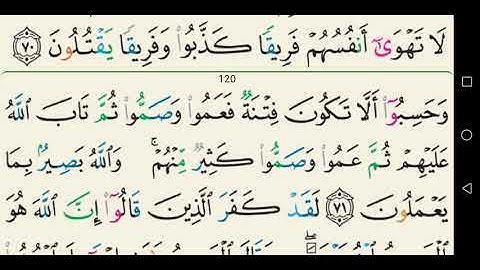 لَا تَهْوَىٰٓ أَنفُسُهُمْ فَرِيقًا كَذَّبُوا۟ وَفَرِيقًا يَقْتُلُونَ ٧٠
120
وَحَسِبُوٓا۟ أَلَّا تَكُونَ فِتْنَةٌ فَعَمُوا۟ وَصَمُّوا۟ ثُمَّ تَابَ ٱللَّهُ
عَلَيْهِمْ ثُمَّ عَمُوا۟ وَصَمُّوا۟ كَثِيرٌ مِّنْهُمْ ۚ وَٱللَّهُ بَصِيرٌۢ بِمَا
يَعْمَلُونَ ٧١ لَقَدْ كَفَرَ ٱلَّذِينَ قَالُوٓا۟ إِنَّ ٱللَّهَ هُوَ